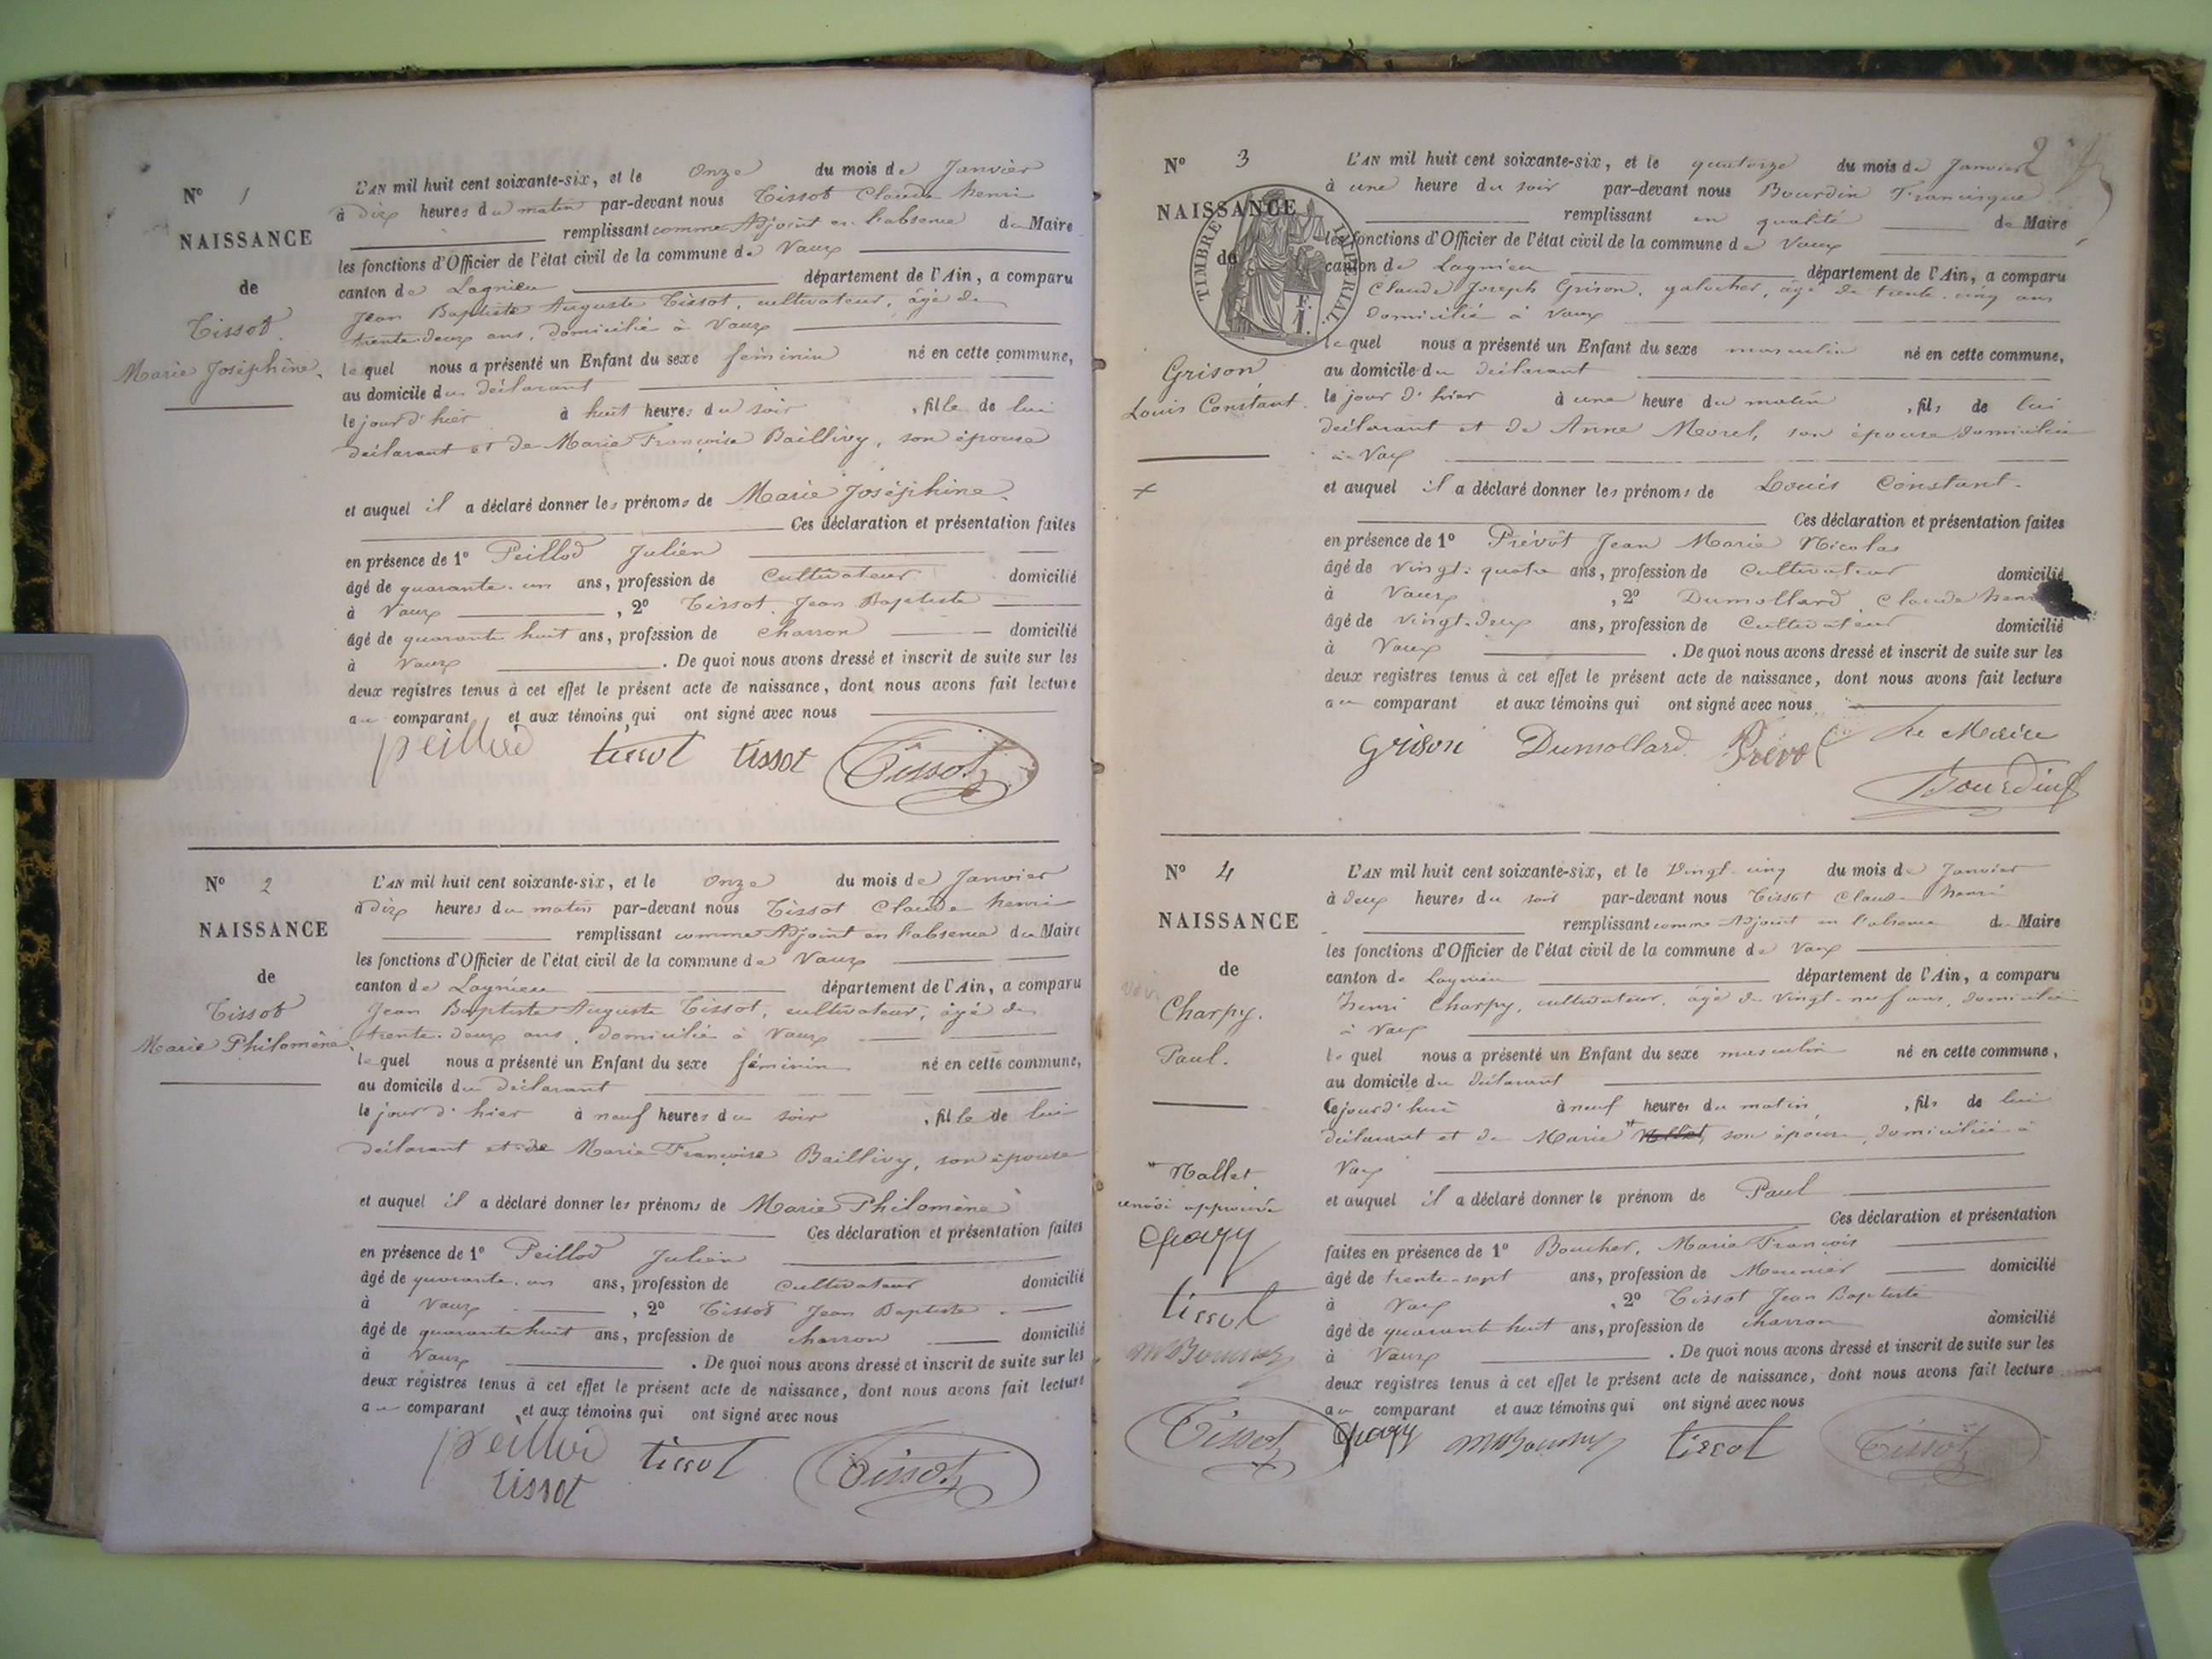 N° 1
NAISSANCE
de
Tissot
Marie Joséphine.
L'AN mil huit cent soixante-six, et le onze du mois de Janvier
à dix heures du matin par-devant nous Tissot Claude henri
remplissant comme Adjoint en l'absence du Maire
les fonctions d'Officier de l'état civil de la commune de Vaux
canton de Lagnieu département de l'Ain, a comparu
Jean Baptiste Auguste Tissot, cultivateur, âgé de
trente-deux ans, domicilié à Vaux
lequel nous a présenté un Enfant du sexe féminin né en cette commune,
au domicile du déclarant
le jour d'hier à huit heures du soir, fille de lui
déclarant et de Marie Françoise Baillivy, son épouse
et auquel il a déclaré donner les prénoms de Marie Joséphine.
Ces déclaration et présentation faites
en présence de 1° Peillod Julien
âgé de quarante-un ans, profession de Cultivateur domicilié
à Vaux, 2° Tissot Jean Baptiste
âgé de quarante huit ans, profession de charron domicilié
à Vaux. De quoi nous avons dressé et inscrit de suite sur les
deux registres tenus à cet effet le présent acte de naissance, dont nous avons fait lecture
au comparant et aux témoins qui ont signé avec nous
peillod tissot tissot Tissot
N° 2
NAISSANCE
de
Tissot
Marie Philomène.
L'AN mil huit cent soixante-six, et le onze du mois de Janvier
à dix heures du matin par-devant nous Tissot Claude henri
remplissant comme Adjoint en l'absence du Maire
les fonctions d'Officier de l'état civil de la commune de Vaux
canton de Lagnieu département de l'Ain, a comparu
Jean Baptiste Auguste Tissot, cultivateur, âgé de
trente-deux ans, domicilié à Vaux
lequel nous a présenté un Enfant du sexe féminin né en cette commune,
au domicile du déclarant
le jour d'hier à neuf heures du soir, fille de lui
déclarant et de Marie Françoise Baillivy, son épouse
et auquel il a déclaré donner les prénoms de Marie Philomène
Ces déclaration et présentation faites
en présence de 1° Peillod Julien
âgé de quarante-un ans, profession de cultivateur domicilié
à Vaux, 2° Tissot Jean Baptiste
âgé de quarante huit ans, profession de charron domicilié
à Vaux. De quoi nous avons dressé et inscrit de suite sur les
deux registres tenus à cet effet le présent acte de naissance, dont nous avons fait lecture
au comparant et aux témoins qui ont signé avec nous
peillod tissot Tissot
tissot
2
N° 3
NAISSANCE
de
TIMBRE IMPERIAL
Grison
Louis Constant.
L'AN mil huit cent soixante-six, et le quatorze du mois de Janvier
à une heure du soir par-devant nous Bourdin Francisque
remplissant en qualité de Maire
les fonctions d'Officier de l'état civil de la commune de Vaux
canton de Lagnieu département de l'Ain, a comparu
Claude Joseph Grison, galocher, âgé de trente-cinq ans
domicilié à Vaux
lequel nous a présenté un Enfant du sexe masculin né en cette commune,
au domicile du déclarant
le jour d'hier à une heure du matin, fils de lui
déclarant et de Anne Morel, son épouse domiciliée
à Vaux
et auquel il a déclaré donner les prénoms de Louis Constant.
Ces déclaration et présentation faites
en présence de 1° Prévôt Jean Marie Nicolas
âgé de vingt-quatre ans, profession de Cultivateur domicilié
à Vaux, 2° Dumollard Claude henri
âgé de vingt-deux ans, profession de Cultivateur domicilié
à Vaux. De quoi nous avons dressé et inscrit de suite sur les
deux registres tenus à cet effet le présent acte de naissance, dont nous avons fait lecture
au comparant et aux témoins qui ont signé avec nous
Grison Dumollard Prévot Le Maire
Bourdin
N° 4
NAISSANCE
de
Charpy.
Paul.
L'AN mil huit cent soixante-six, et le Vingt-cinq du mois de Janvier
à deux heures du soir par-devant nous Tissot Claude henri
remplissant comme Adjoint en l'absence du Maire
les fonctions d'Officier de l'état civil de la commune de Vaux
canton de Lagnieu département de l'Ain, a comparu
henri Charpy, cultivateur, âgé de vingt-neuf ans, domicilié
à Vaux
lequel nous a présenté un Enfant du sexe masculin né en cette commune,
au domicile du déclarant
cejourd'hui à neuf heures du matin, fils de lui
déclarant et de Marie son épouse, domiciliée à
Vaux
et auquel il a déclaré donner le prénom de Paul
Ces déclaration et présentation
faites en présence de 1° Boucher, Marie François
âgé de trente-sept ans, profession de Meunier domicilié
à Vaux, 2° Tissot Jean Baptiste
âgé de quarante huit ans, profession de charron domicilié
à Vaux. De quoi nous avons dressé et inscrit de suite sur les
deux registres tenus à cet effet le présent acte de naissance, dont nous avons fait lecture
au comparant et aux témoins qui ont signé avec nous
Nallet
renvoi approuvé
tissot
Tissot
tissot Tissot